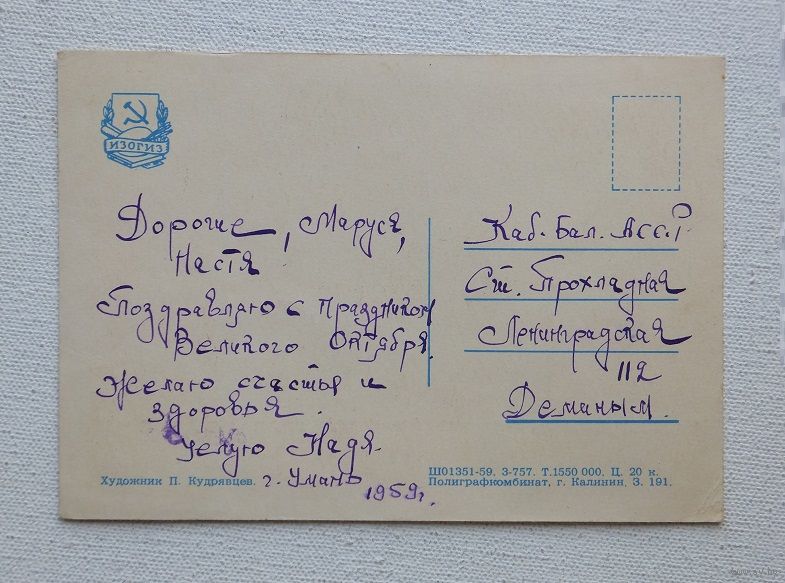 ИЗОГИЗ
Дорогие, Маруся,
Настя
Поздравляю с праздником
Великого Октября.
Желаю счастья и
здоровья.
Целую Надя.
г. Умань
1959г.
Каб. Бал. АССР
Ст. Прохладная
Ленинградская
112
Деминым.
Художник П. Кудрявцев.
Ш01351-59. З-757. Т.1550 000. Ц. 20 к.
Полиграфкомбинат, г. Калинин, З. 191.